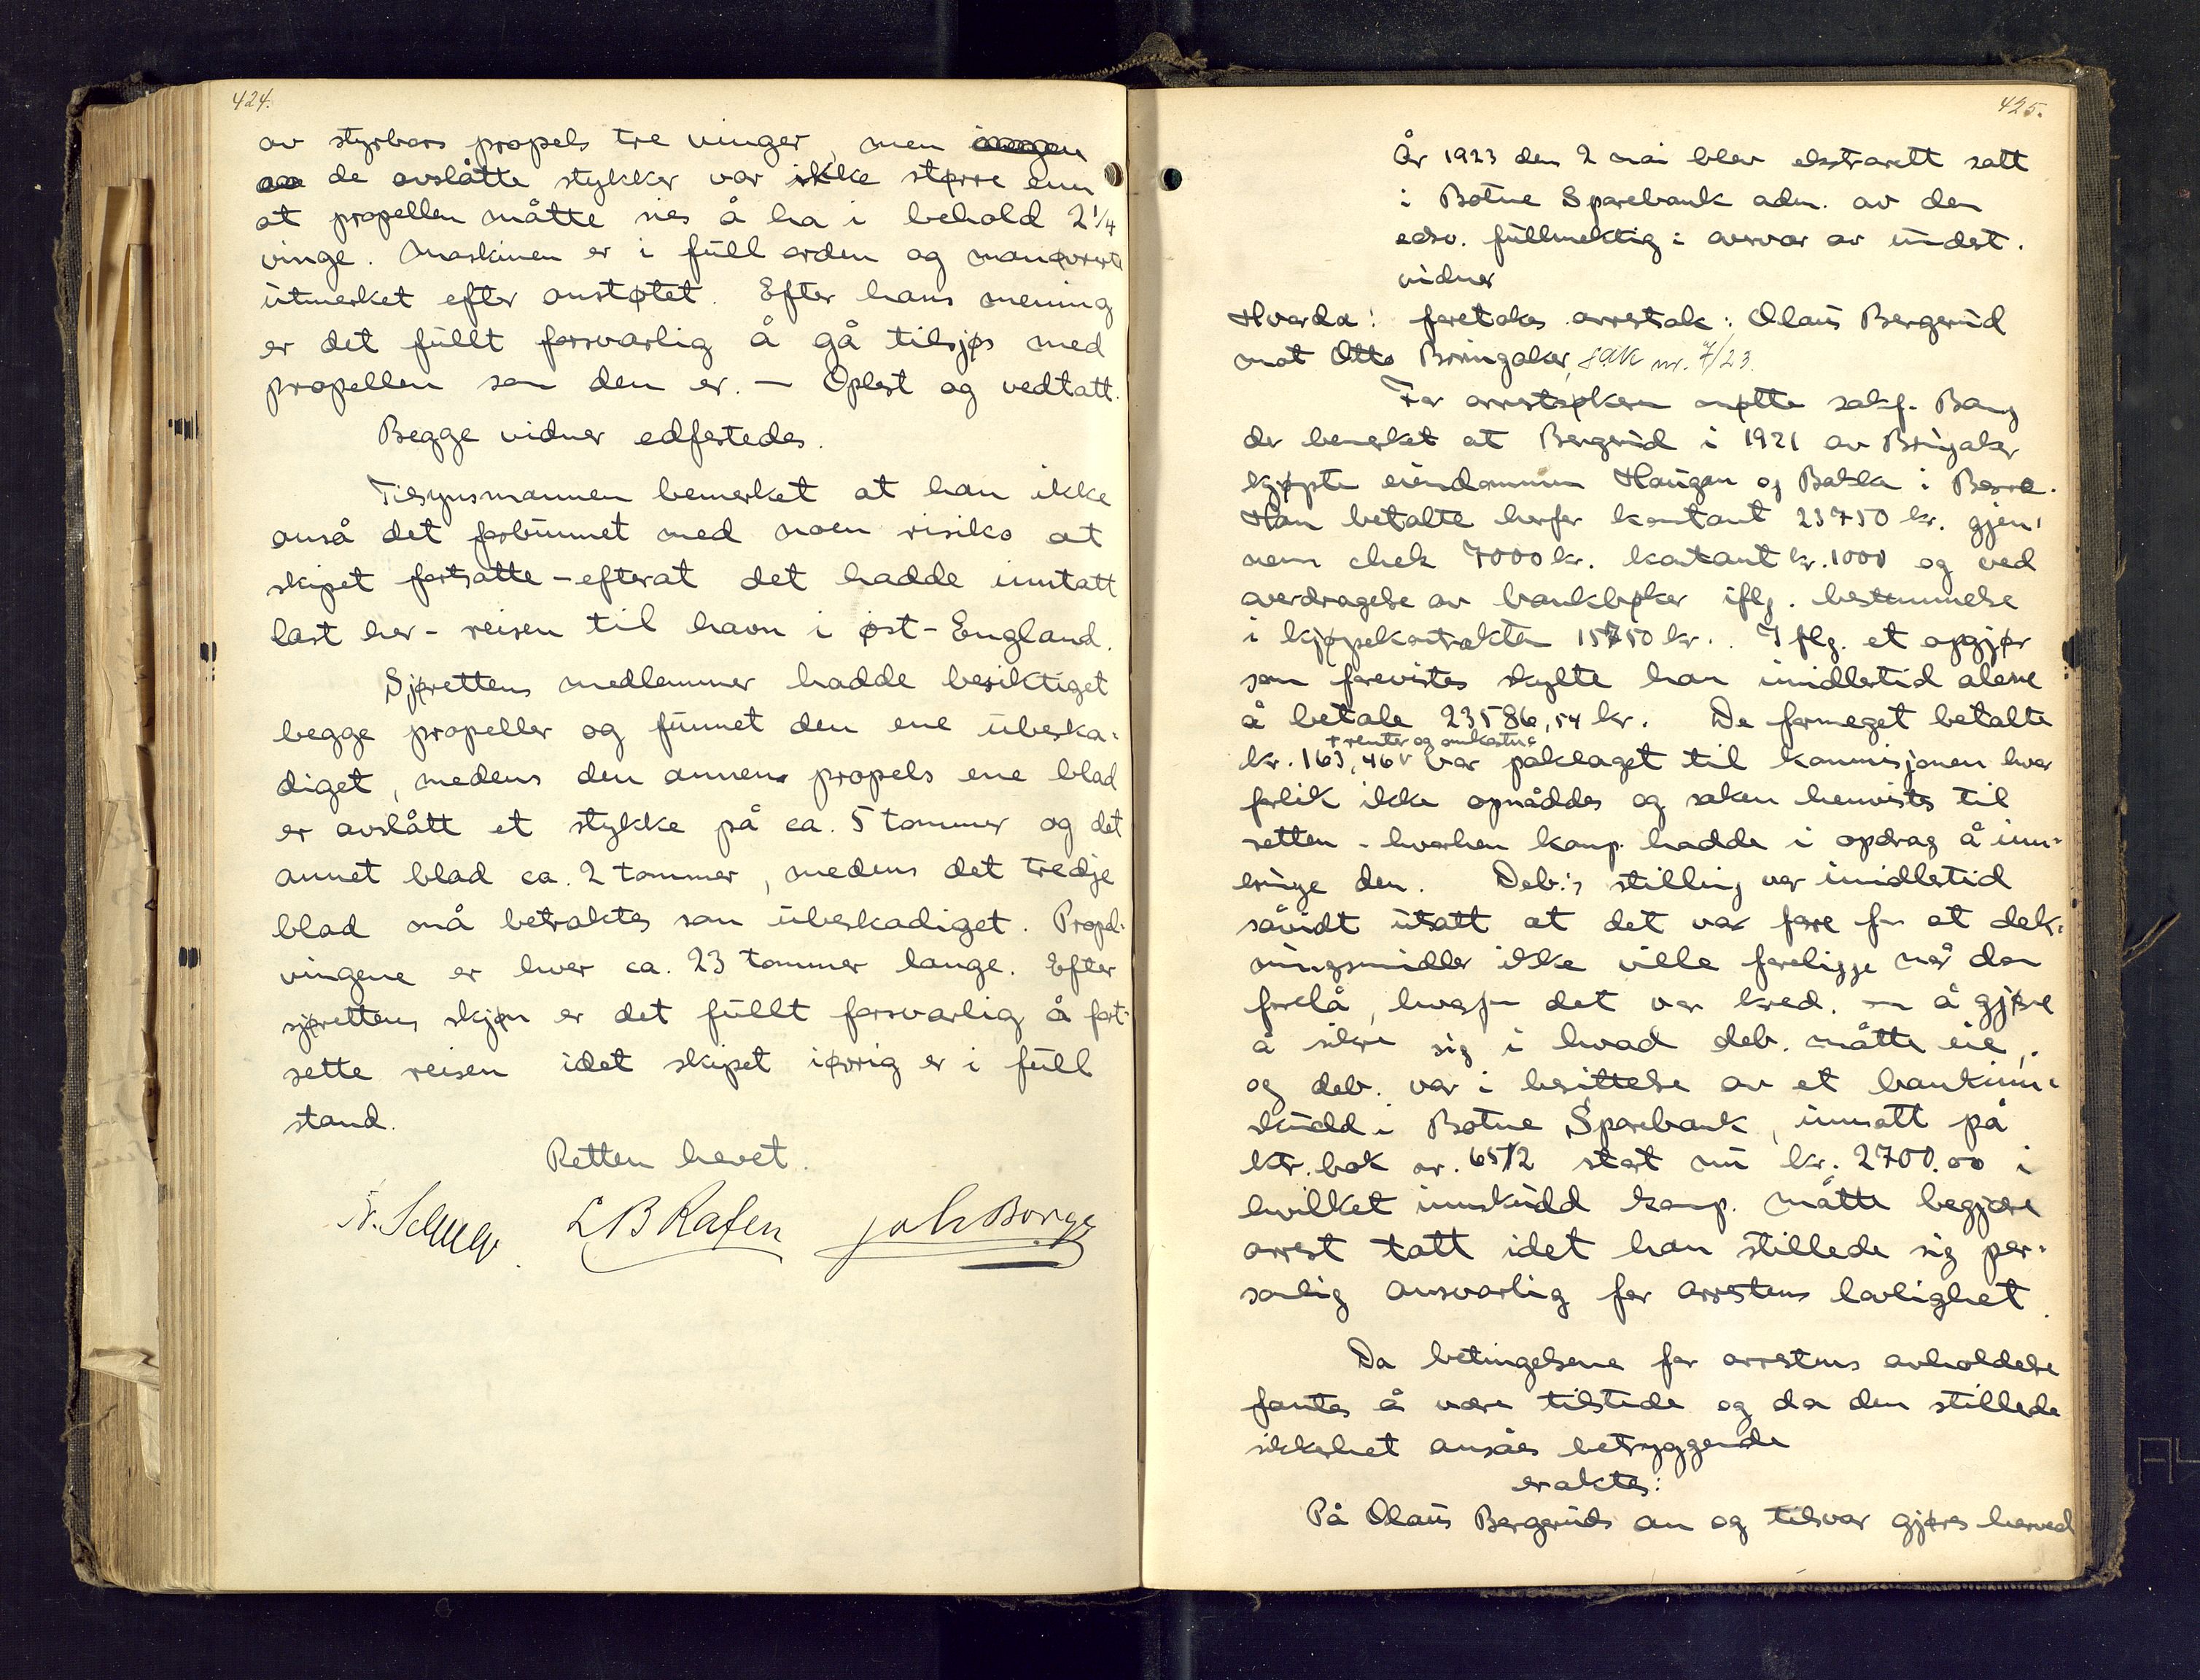 424.
av styrbors propels tre vinger, men
de avslåtte stykker var ikke større enn
at propellen måtte sies å ha i behold 2 1/4
vinge. Maskinen er i full orden og manøvrerte
utmerket efter anstøtet. Efter hans mening
er det fullt forsvarlig å gå tilsjøs med
propellen som den er. — Oplest og vedtatt.
Begge vidner edfestedes.
Tilsynsmannen bemerket at han ikke
anså det forbunnet med noen risiko at
skipet fortsatte - efterat det hadde inntatt
last her - reisen til havn i øst-England.
Sjørettens medlemmer hadde besiktiget
begge propeller og funnet den ene ubeska-
diget, medens den annens propels ene blad
er avslått et stykke på ca. 5 tommer og det
annet blad ca. 2 tommer, medens det tredje
blad må betraktes som ubeskadiget. Propel-
vingene er hver ca. 23 tommer lange. Efter
sjørettens skjøn er det fullt forsvarlig å fort-
sette reisen idet skipet iøvrig er i full
stand.
Retten hevet.
L B Rafen Joh Borge
425.
År 1923 den 2 mai blev ekstrarett satt
i Botne Sparebank adm. av den
edsv. fullmektig i overvær av undst.
vidner
Hvorda: foretokes arrestsak: Olaus Bergerud
mot Otto Bringaker, sak nr. 7/23.
For arrestsøkeren møtte sakf. Bang
der bemerket at Bergerud i 1921 av Bringaker
kjøpte eiendommen Haugen og Bakka i Borre.
Han betalte herfor kontant 23750 kr. gjen-
nem chek 7000 kr. kontant kr. 1000 og ved
overdragelse av bankbøker iflg. bestemmelse
i kjøpekontrakten 15750 kr. Iflg. et opgjør
som forevistes skylte han imidlertid alene
å betale 23586,54 kr. De formeget betalte
+ renter og omkostn.
kr. 163,46 v var påklaget til kommisjonen hvor
forlik ikke opnåddes og saken henvistes til
retten - hvorhen komp. hadde i opdrag å inn-
bringe den. Deb.s stilling var imidlertid
såvidt utsatt at det var fare for at dek-
ningsmidler ikke ville foreligge når dom
forelå, hvorfor det var kred. om å gjøre
å sikre sig i hvad deb. måtte eie,
og deb. var i besittelse av et bankinn-
skudd i Botne Sparebank, innsatt på
ktr. bok nr. 6512 stort nu kr. 2700.00 i
hvilket innskudd komp. måtte begjære
arrest tatt idet han stillede sig per-
sonlig ansvarlig for arrestens lovlighet.
Da betingelsene for arrestens avholdelse
fantes å være tilstede og da den stillede
sikkerhet ansåes betryggende
eraktes:
På Olaus Bergeruds an og tilsvar gjøres herved